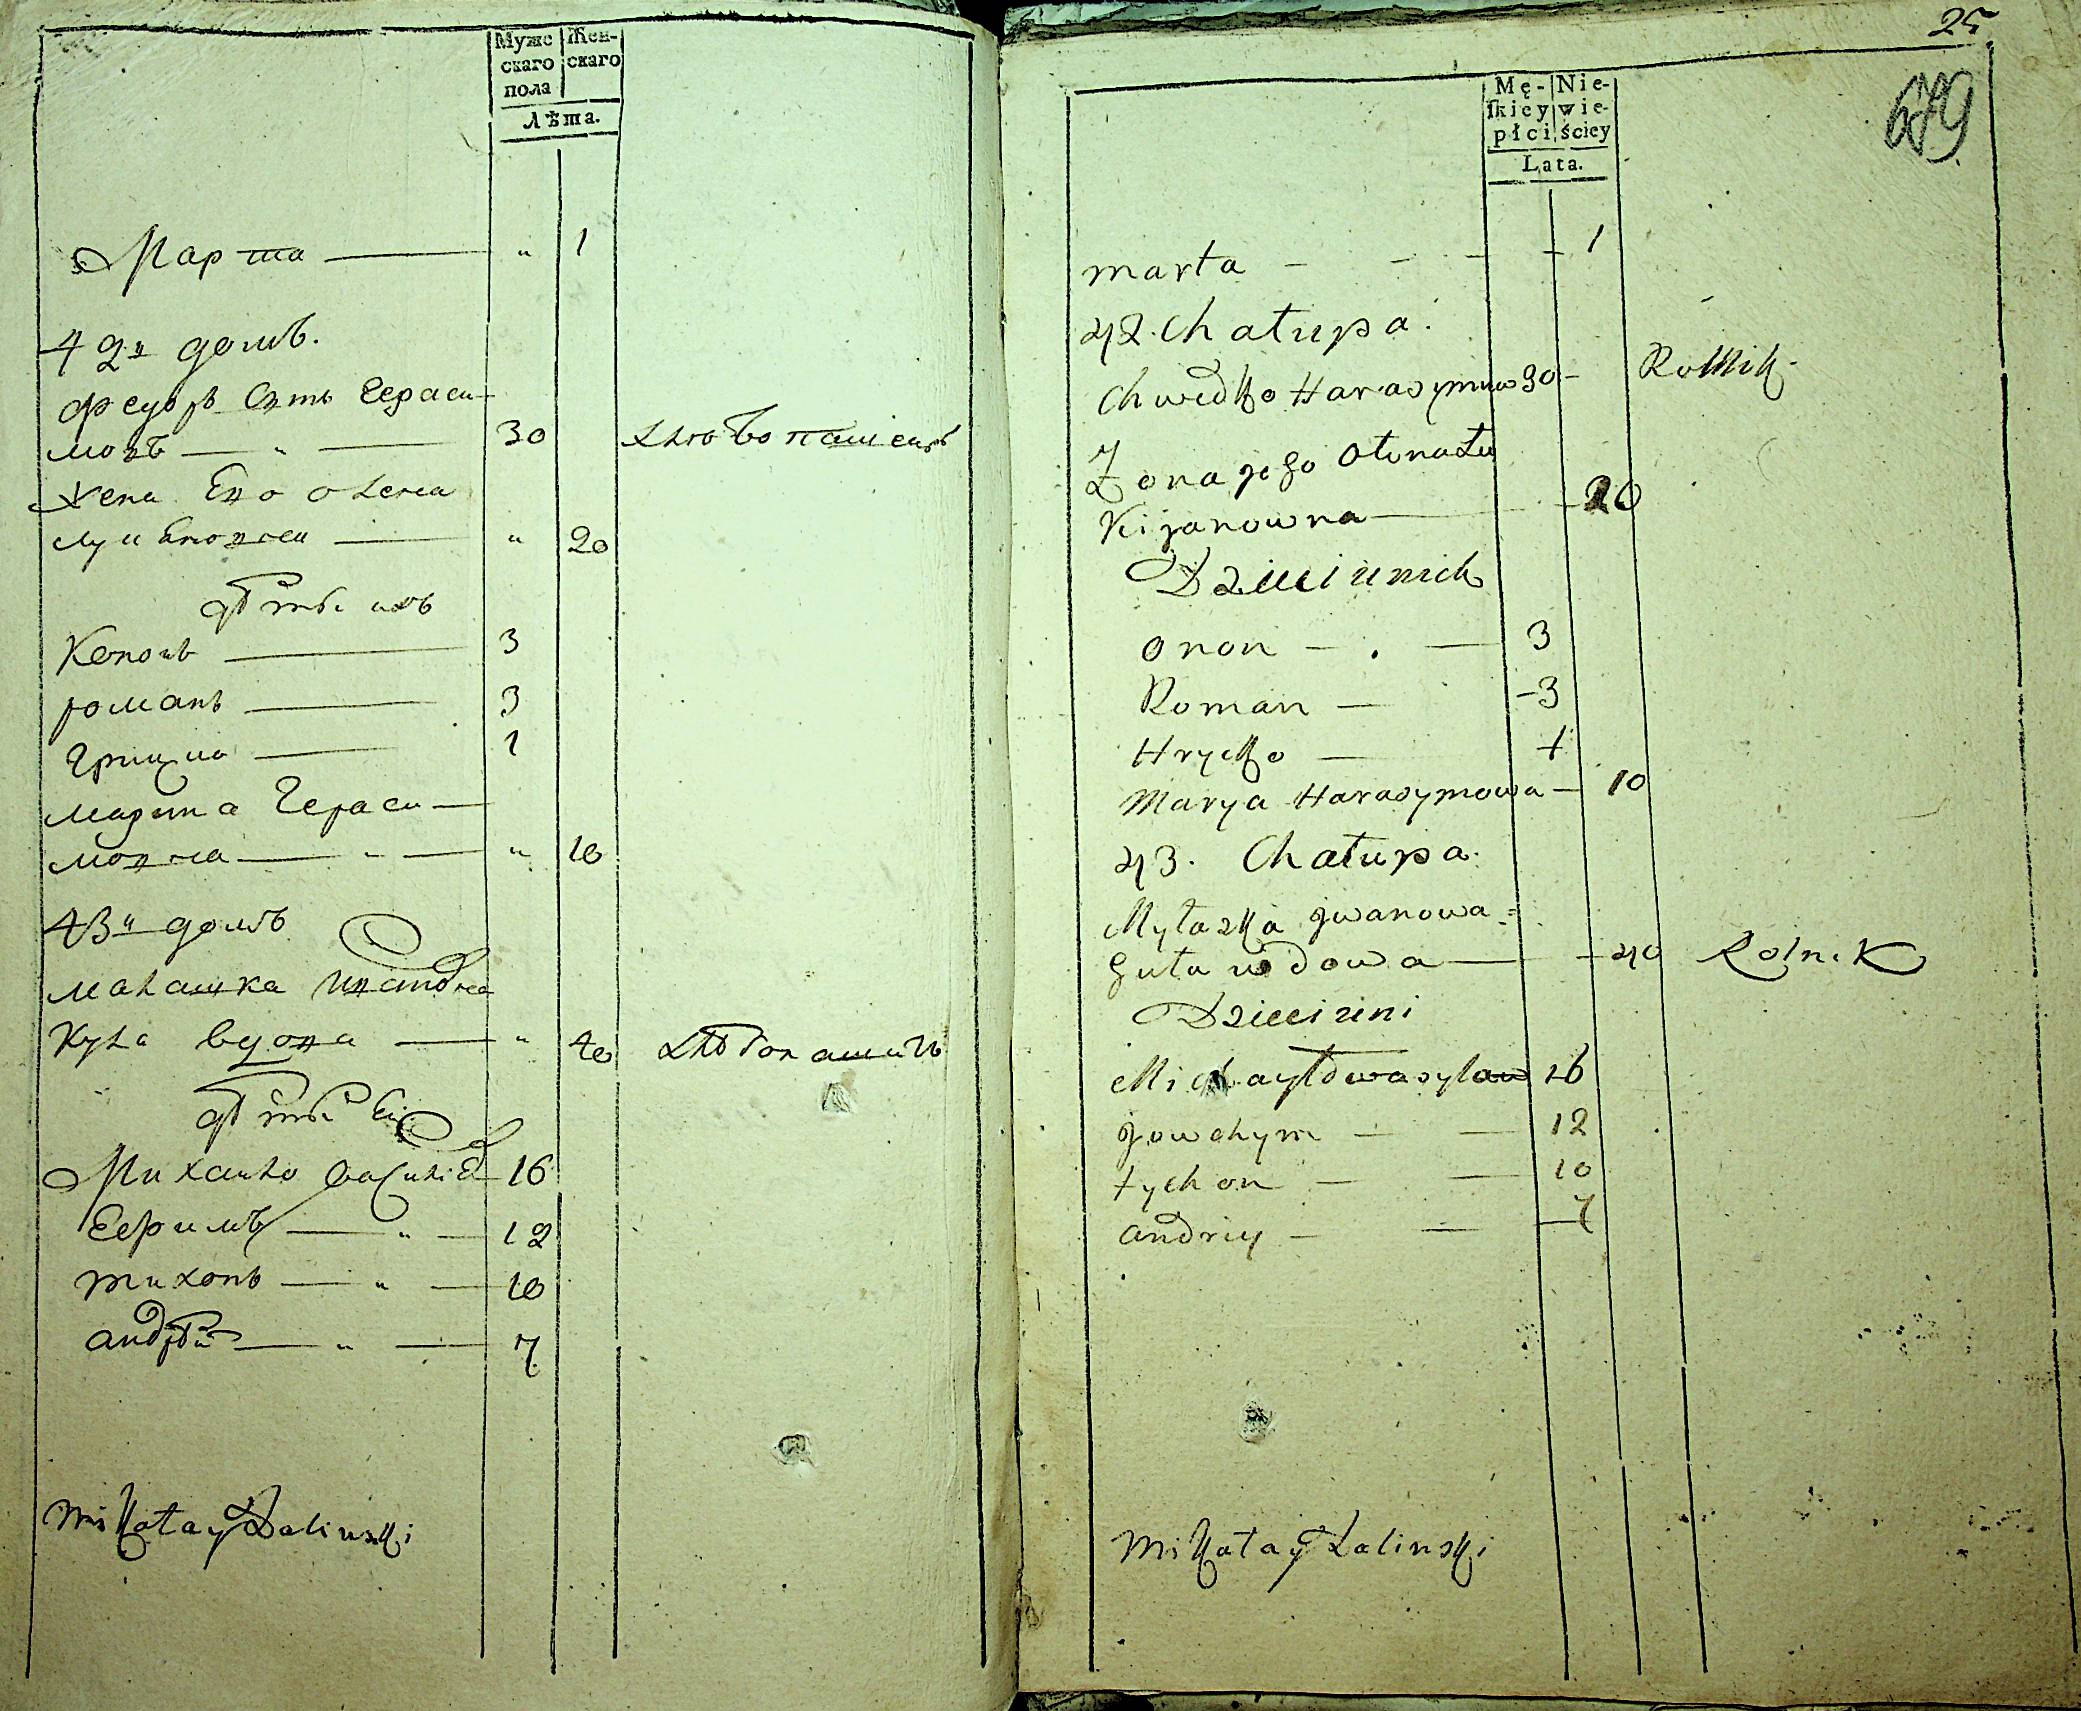 Муже Жен-
скаго скаго
пола
Лѣта.
Марта — „ 1
42й домъ.
Федоръ Сынъ Гераси-
мовъ — „ — 30 хлѣбопашецъ
жена Его олена
„ 20
дѣти ихъ
Кононъ — 3
романъ — 3
Грицко — 1
марина Гераси-
мовна — „ — „ 10
43й домъ
малашка Иванова
Кула вдова — „ 40 хлѣбопашецъ
дѣти Ей
Михайло 16
Ефимъ — „ — 12
тихонъ — „ — 10
андрѣй — „ — 7
Mikołay Zalinski
25
679
Mę- Nie-
ſkiey wie-
płci ściey
Lata.
marta - - - - 1
42. Chałupa.
Chwedko Harasymow 30 - Rolnik
Żona jego
Kijanowna — 20
Dzieci ich
onon — . — 3
Roman — 3
Hrycko — 1
Marya Harasymowa — 10
43. Chałupa.
Mełaszka jwanowa =
guła wdowa — 40 Rolnik
Dzieci jni
Michayło wasylow 16
jowchym — — 12
tychon — — 10
andriy — — 7
Mikołay Zalinski